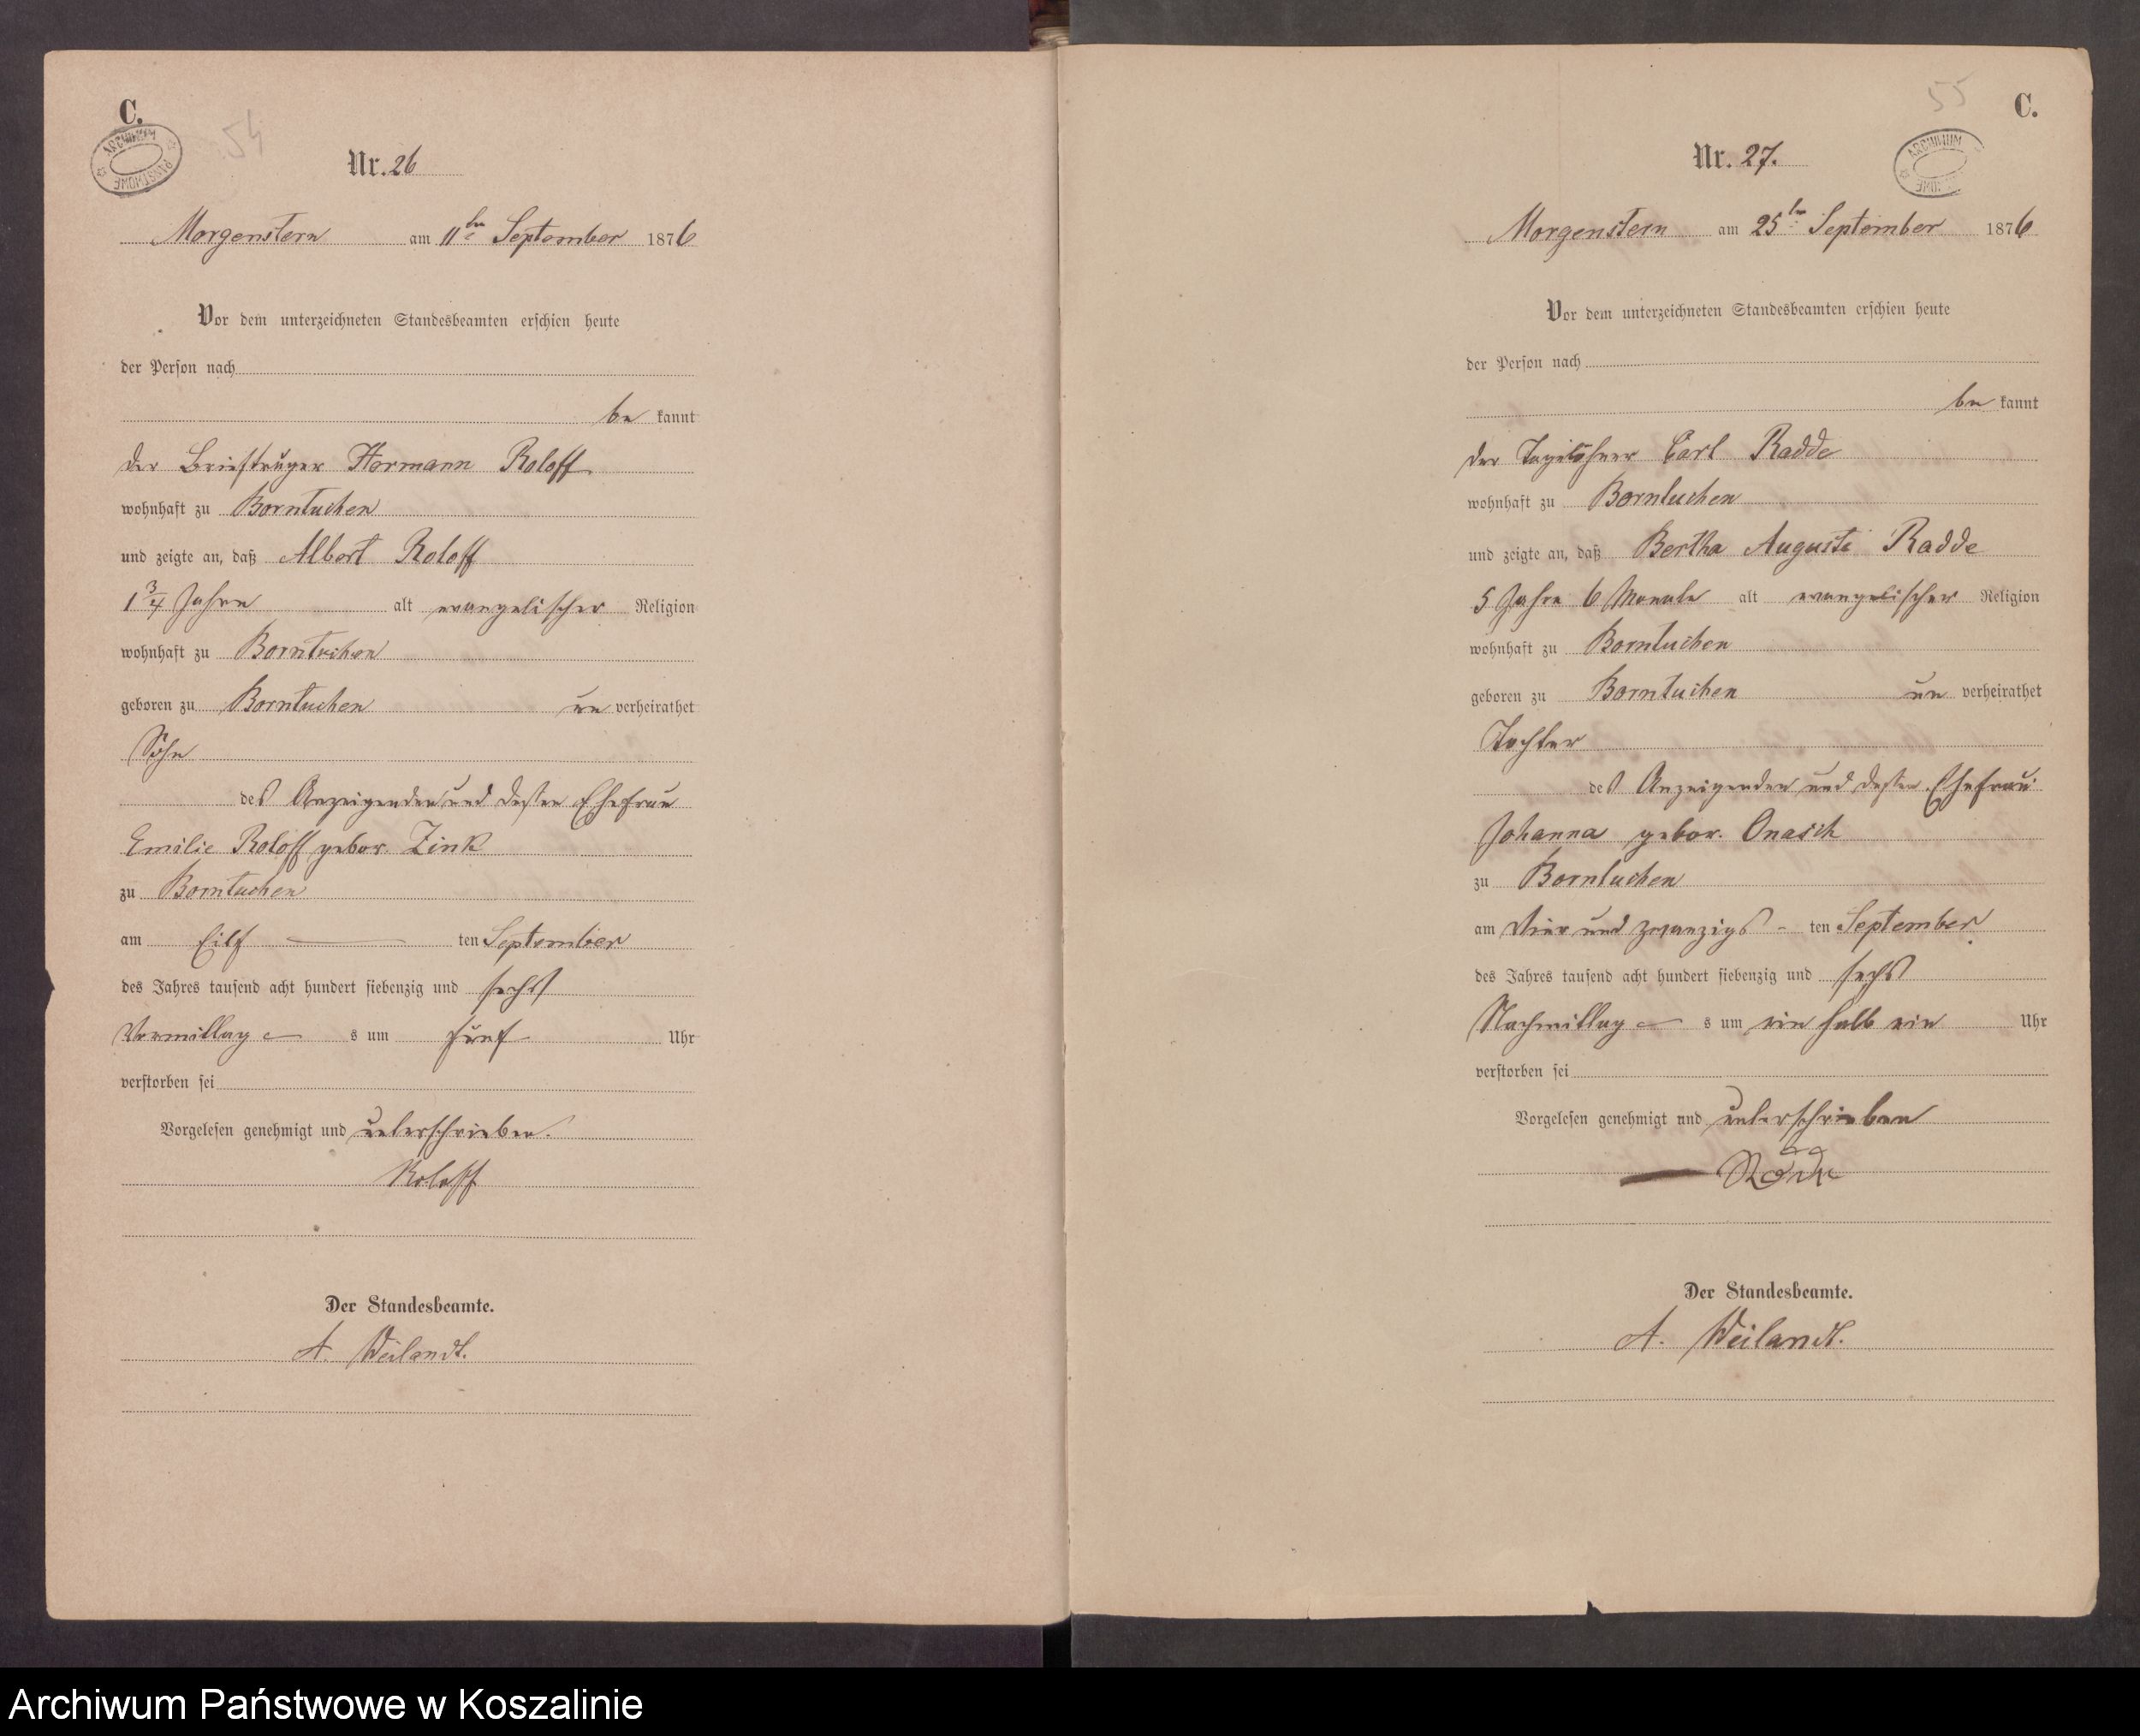 C.
54
ARCHIWUM PAŃSTWOWE
Nr. 26
Morgenstern am 11ten September 1876
Vor dem unterzeichneten Standesbeamten erschien heute
der Person nach
be kannt
der Briefträger Hermann Roloff
wohnhaft zu Borntuchen
und zeigte an, daß Albert Roloff
1 3/4 Jahre alt evangelischer Religion
wohnhaft zu Borntuchen
geboren zu Borntuchen un verheirathet
Sohn
des Anzeigenden und dessen Ehefrau
Emilie Roloff gebor. Zink
zu Borntuchen
am Eilf ten September
des Jahres tausend acht hundert siebenzig und sechs
Vormittag s um fünf Uhr
verstorben sei
Vorgelesen genehmigt und unterschrieben.
Roloff
Der Standesbeamte.
A. Weilandt.
55
C.
ARCHIWUM
Nr. 27.
Morgenstern am 25ten September 1876
Vor dem unterzeichneten Standesbeamten erschien heute
der Person nach
be kannt
der Tagelöhner Carl Radde
wohnhaft zu Borntuchen
und zeigte an, daß Bertha Auguste Radde
5 Jahre 6 Monate alt evangelischer Religion
wohnhaft zu Borntuchen
geboren zu Borntuchen un verheirathet
Tochter
des Anzeigenden und dessen Ehefrau
Johanna gebor. Onasch
zu Borntuchen
am Vier und zwanzigs - ten September
des Jahres tausend acht hundert siebenzig und sechs
Nachmittag s um ein halb ein Uhr
verstorben sei
Vorgelesen genehmigt und unterschrieben
Der Standesbeamte.
A. Weilandt.
Archiwum Państwowe w Koszalinie